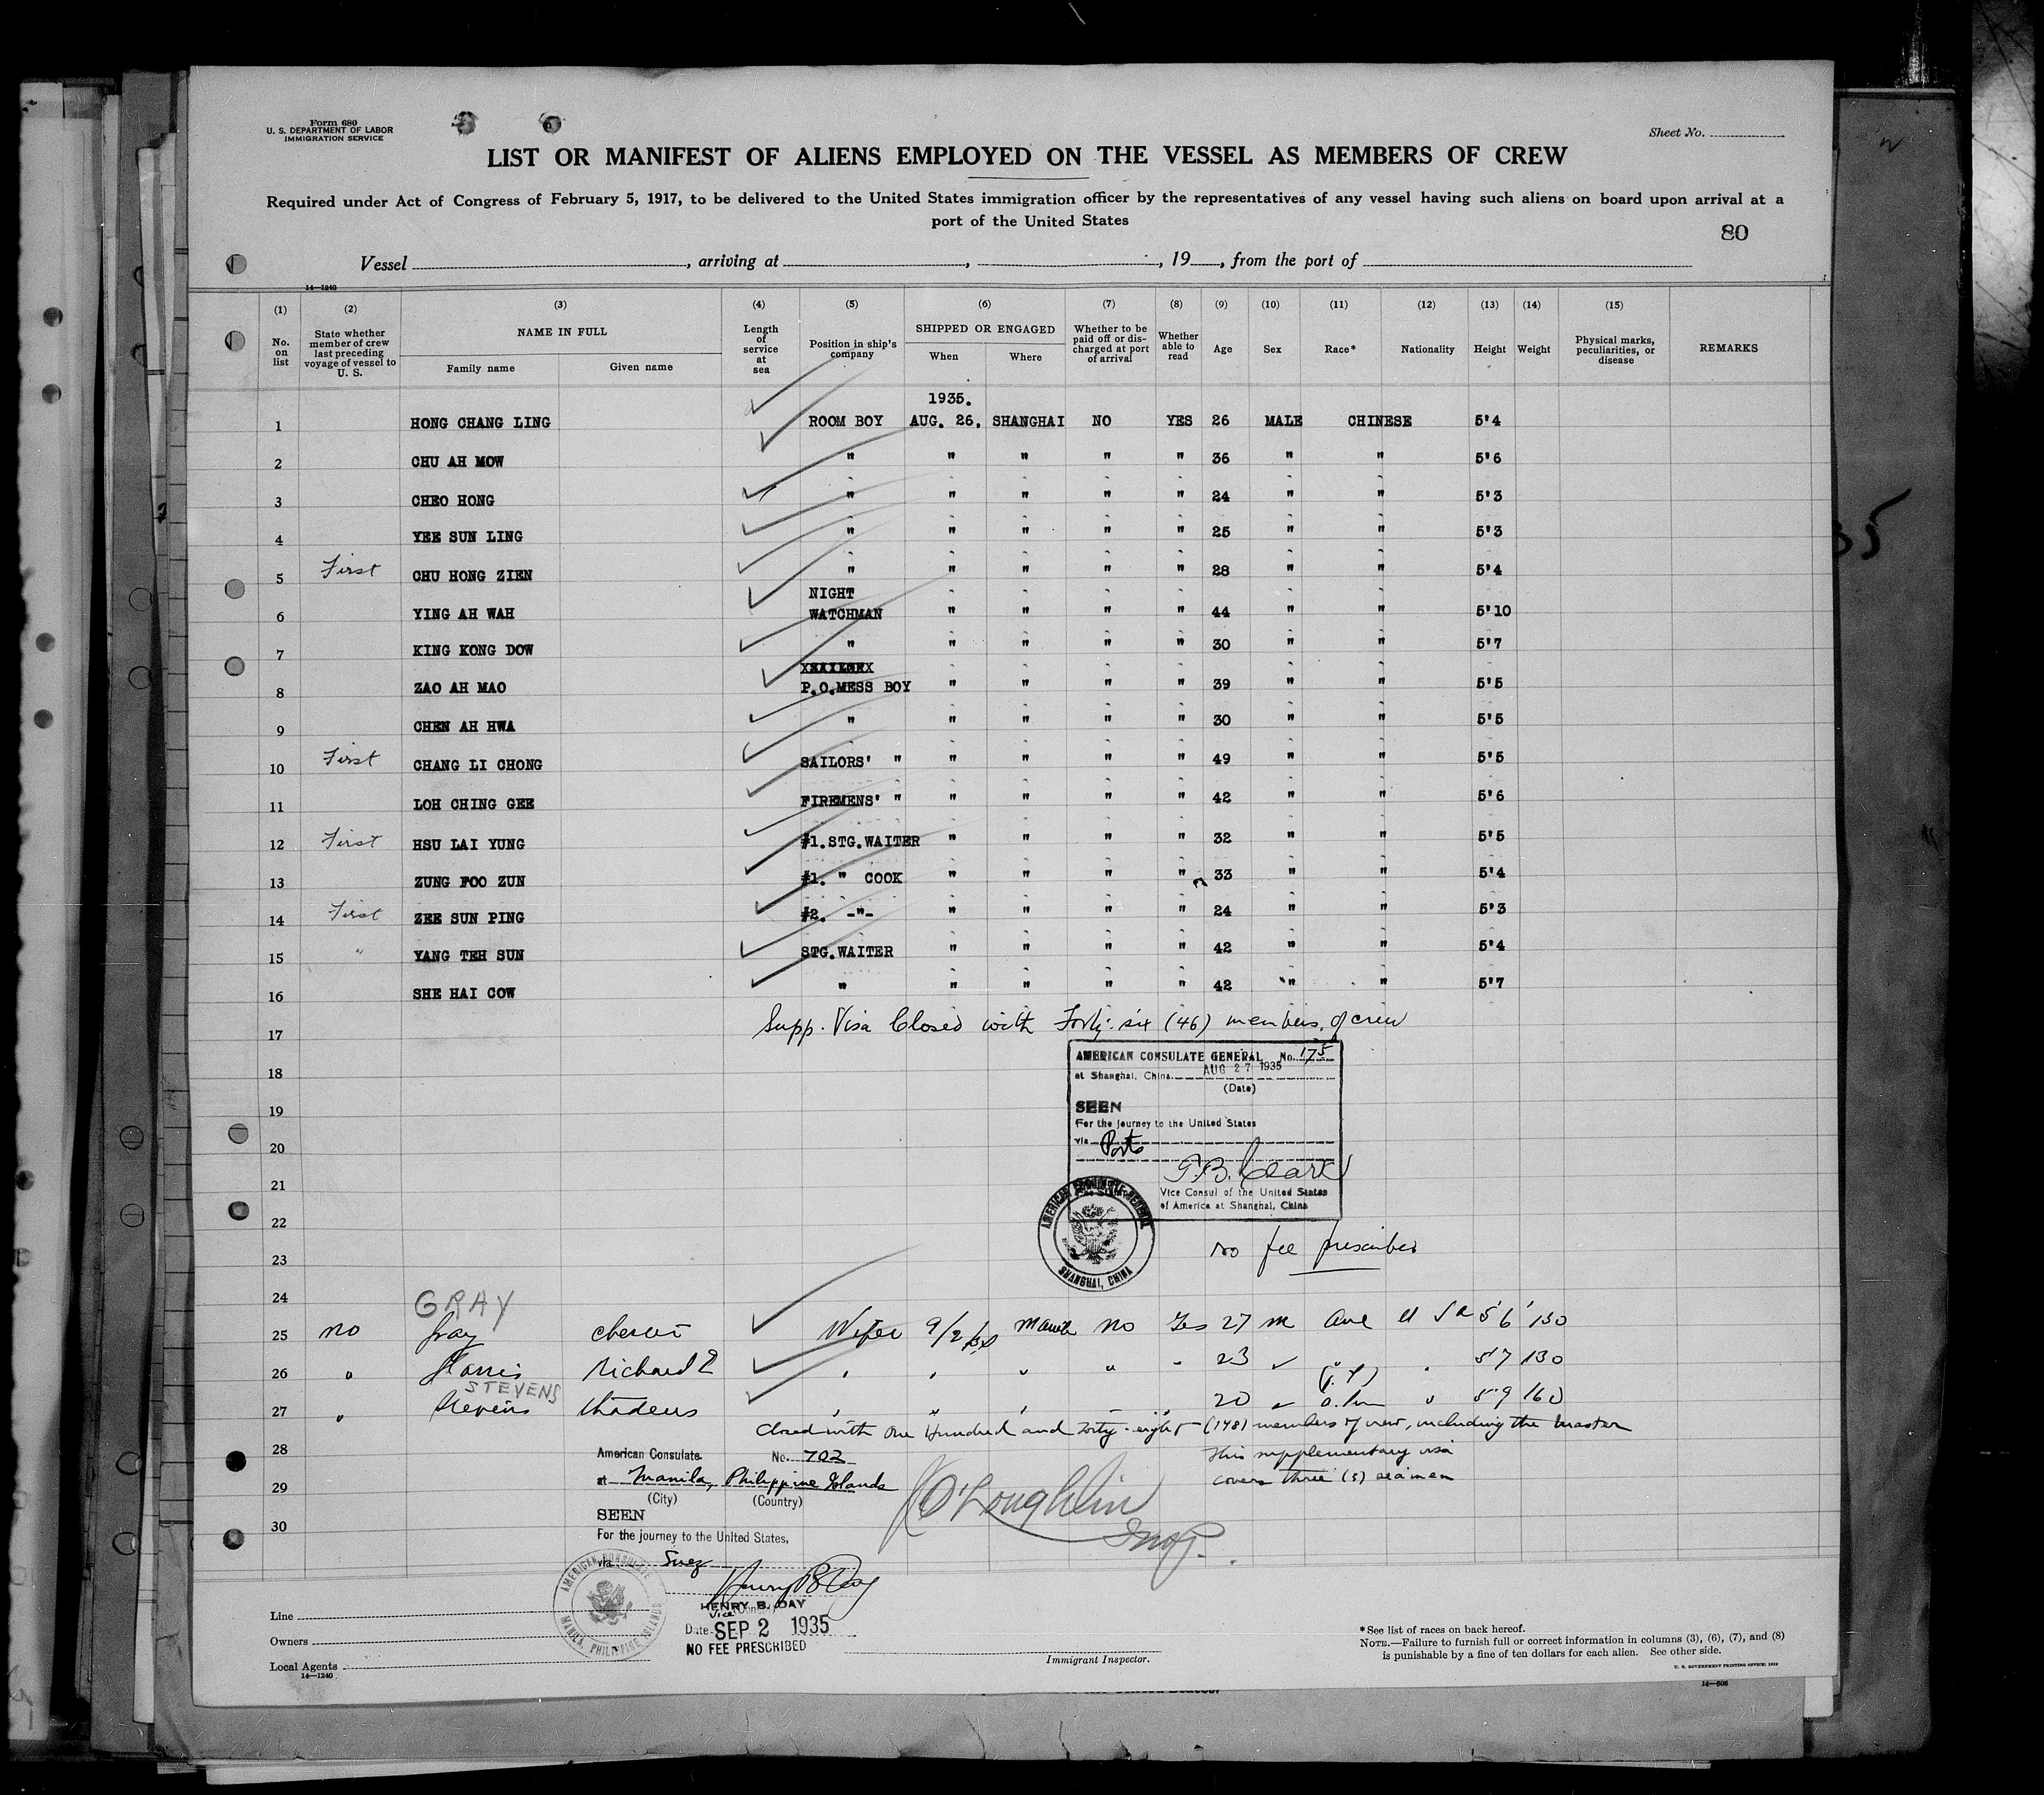 Form 680
U. S. DEPARTMENT OF LABOR
IMMIGRATION SERVICE
Sheet No.
LIST OR MANIFEST OF ALIENS EMPLOYED ON THE VESSEL AS MEMBERS OF CREW
Required under Act of Congress of February 5, 1917, to be delivered to the United States immigration officer by the representatives of any vessel having such aliens on board upon arrival at a
port of the United States
80
Vessel , arriving at , , 19 , from the port of
14—1240
(1) (2) (3) (4) (5) (6) (7) (8) (9) (10) (11) (12) (13) (14) (15)
No. on list
State whether member of crew last preceding voyage of vessel to U. S.
NAME IN FULL
Family name
Given name
Length of service at sea
Position in ship's company
SHIPPED OR ENGAGED
When
Where
Whether to be paid off or discharged at port of arrival
Whether able to read
Age
Sex
Race*
Nationality
Height
Weight
Physical marks, peculiarities, or disease
REMARKS
1935.
1 HONG CHANG LING ROOM BOY AUG. 26, SHANGHAI NO YES 26 MALE CHINESE 5'4
2 CHU AH MOW " " " " " 36 " " 5'6
3 CHEO HONG " " " " " 24 " " 5'3
4 YEE SUN LING " " " " " 25 " " 5'3
5 First CHU HONG ZIEN " " " " " 28 " " 5'4
NIGHT
6 YING AH WAH WATCHMAN " " " " 44 " " 5'10
7 KING KONG DOW " " " " " 30 " " 5'7
8 ZAO AH MAO P.O.MESS BOY " " " " 39 " " 5'5
9 CHEN AH HWA " " " " " 30 " " 5'5
10 First CHANG LI CHONG SAILORS' " " " " " 49 " " 5'5
11 LOH CHING GEE FIREMENS' " " " " " 42 " " 5'6
12 First HSU LAI YUNG #1.STG.WAITER " " " " 32 " " 5'5
13 ZUNG FOO ZUN #1. " COOK " " " " 33 " " 5'4
14 First ZEE SUN PING #2. -"- " " " " 24 " " 5'3
15 " YANG TEH SUN STG.WAITER " " " " 42 " " 5'4
16 SHE HAI COW " " " " " 42 " " 5'7
17 Supp. Visa Closed with Forty-six (46) members of crew
AMERICAN CONSULATE GENERAL No. 175
at Shanghai, China. AUG 27 1935
18
(Date)
19
SEEN
For the journey to the United States
20
via Ports
21
P.B. Clark
Vice Consul of the United States
of America at Shanghai, China
22
AMERICAN CONSULATE GENERAL
SHANGHAI, CHINA
23
No fee prescribed
24
GRAY
25 no Gray Chester Wiper 9/2/35 Manila no Yes 27 m U S A 5'6' 130
26 " Harris Richard " " " " " 23 " " 5'7 130
STEVENS
27 " Stevens Thadeus " " " " " 20 " " 5'9 160
Closed with One Hundred and forty-eight (148) members of crew, including the master
28
This supplementary visa
covers three (3) seamen
American Consulate. No. 702
at Manila, Philippine Islands
29
(City) (Country)
O'Loughlin
Insp.
SEEN
30
For the journey to the United States,
via Suez
AMERICAN CONSULATE
MANILA, PHILIPPINE ISLANDS
Henry B. Day
HENRY B. DAY
Vice Consul
Date SEP 2 1935
NO FEE PRESCRIBED
Line
Owners
Local Agents
14—1240
Immigrant Inspector.
*See list of races on back hereof.
NOTE.—Failure to furnish full or correct information in columns (3), (6), (7), and (8)
is punishable by a fine of ten dollars for each alien. See other side.
U. S. GOVERNMENT PRINTING OFFICE: